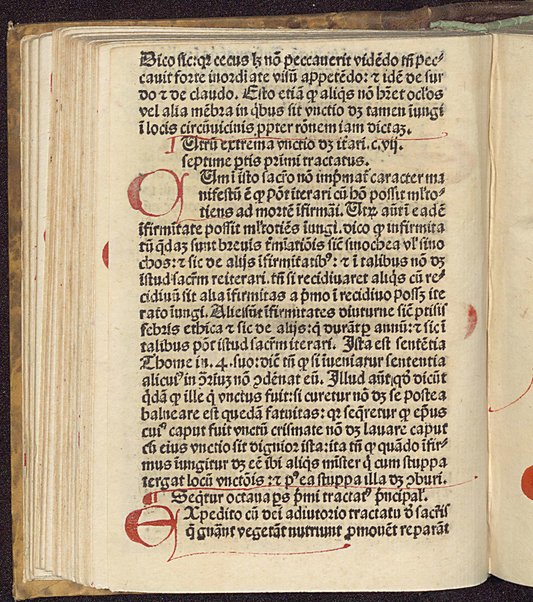 Dico sic: qꝛ cecus lꝫ nō peccauerit vidēdo tñ pec⸗
cauit forte inordiate visū appetēdo: ⁊ idē de sur
do ⁊ de claudo. Esto etiā ꝙ aliqs nō hꝛet ocĺos
vel alia mēbra in qbus sit vnctio dꝫ tamen iungi
ī locis circūuicinis ꝓpter rōnem iam dictaꝫ.
Vtrū extrema vnctio dꝫ itari. c. vij.
septime ꝑtis primi tractatus.
Um ī isto sacro nō imp̄mat̄ caracter ma
nifestū ē ꝙ pōt iterari cū hō possit ml̓to⸗
tiens ad mortē īfirmāi. Vtꝝ aūt ī eadē
īfirmitate possit ml̓totiēs iungi. dico ꝙ infirmita
tū qdaꝫ sunt breuis ēminatiōis sic sinochea vl̓ sino
chos: ⁊ sic de alijs īfirmitatibꝰ: ⁊ ī talibus nō dꝫ
istud sacrm̄ reiterari. tñ si recidiuaret aliqs cū re⸗
cidiuū sit alia īfirmitas a p̄mo ī recidiuo possꝫ ite
rato iungi. Alie sūt īfirmitates diuturne sic ptisis
febris ethica ⁊ sic de alijs: q durāt ꝑ annū: ⁊ sic ī
talibus pōt istud sacrm̄ iterari. Ista est sentētia
Thome in. 4. suo: dic tñ ꝙ si īueniatur sententia
alicuiꝰ in ꝯriuꝫ nō ꝯdēnat eū. Illud aūt qd̄ dicūt
qdā ꝙ ille q vnctus fuit: si curetur nō dꝫ se postea
balneare est quedā fatuitas: qꝛ seq̄retur ꝙ ep̄us
cuiꝰ caput fuit vnctū crismate nō dꝫ lauare caput
cū eius vnctio sit dignior ista: ita tñ ꝙ quādo īfir⸗
mus iungitur dꝫ eē ibi aliqs mīster q cum stuppa
tergat locū vnctōis: ⁊ pꝰea stuppa illa dꝫ ꝯburi.
Seqtur octaua ps p̄mi tractatꝰ p̄ncipal̓.
Expedito cū dei adiutorio tractatu d̄ sacris
q gnant vegetāt nutriunt ꝓmouēt reparāt